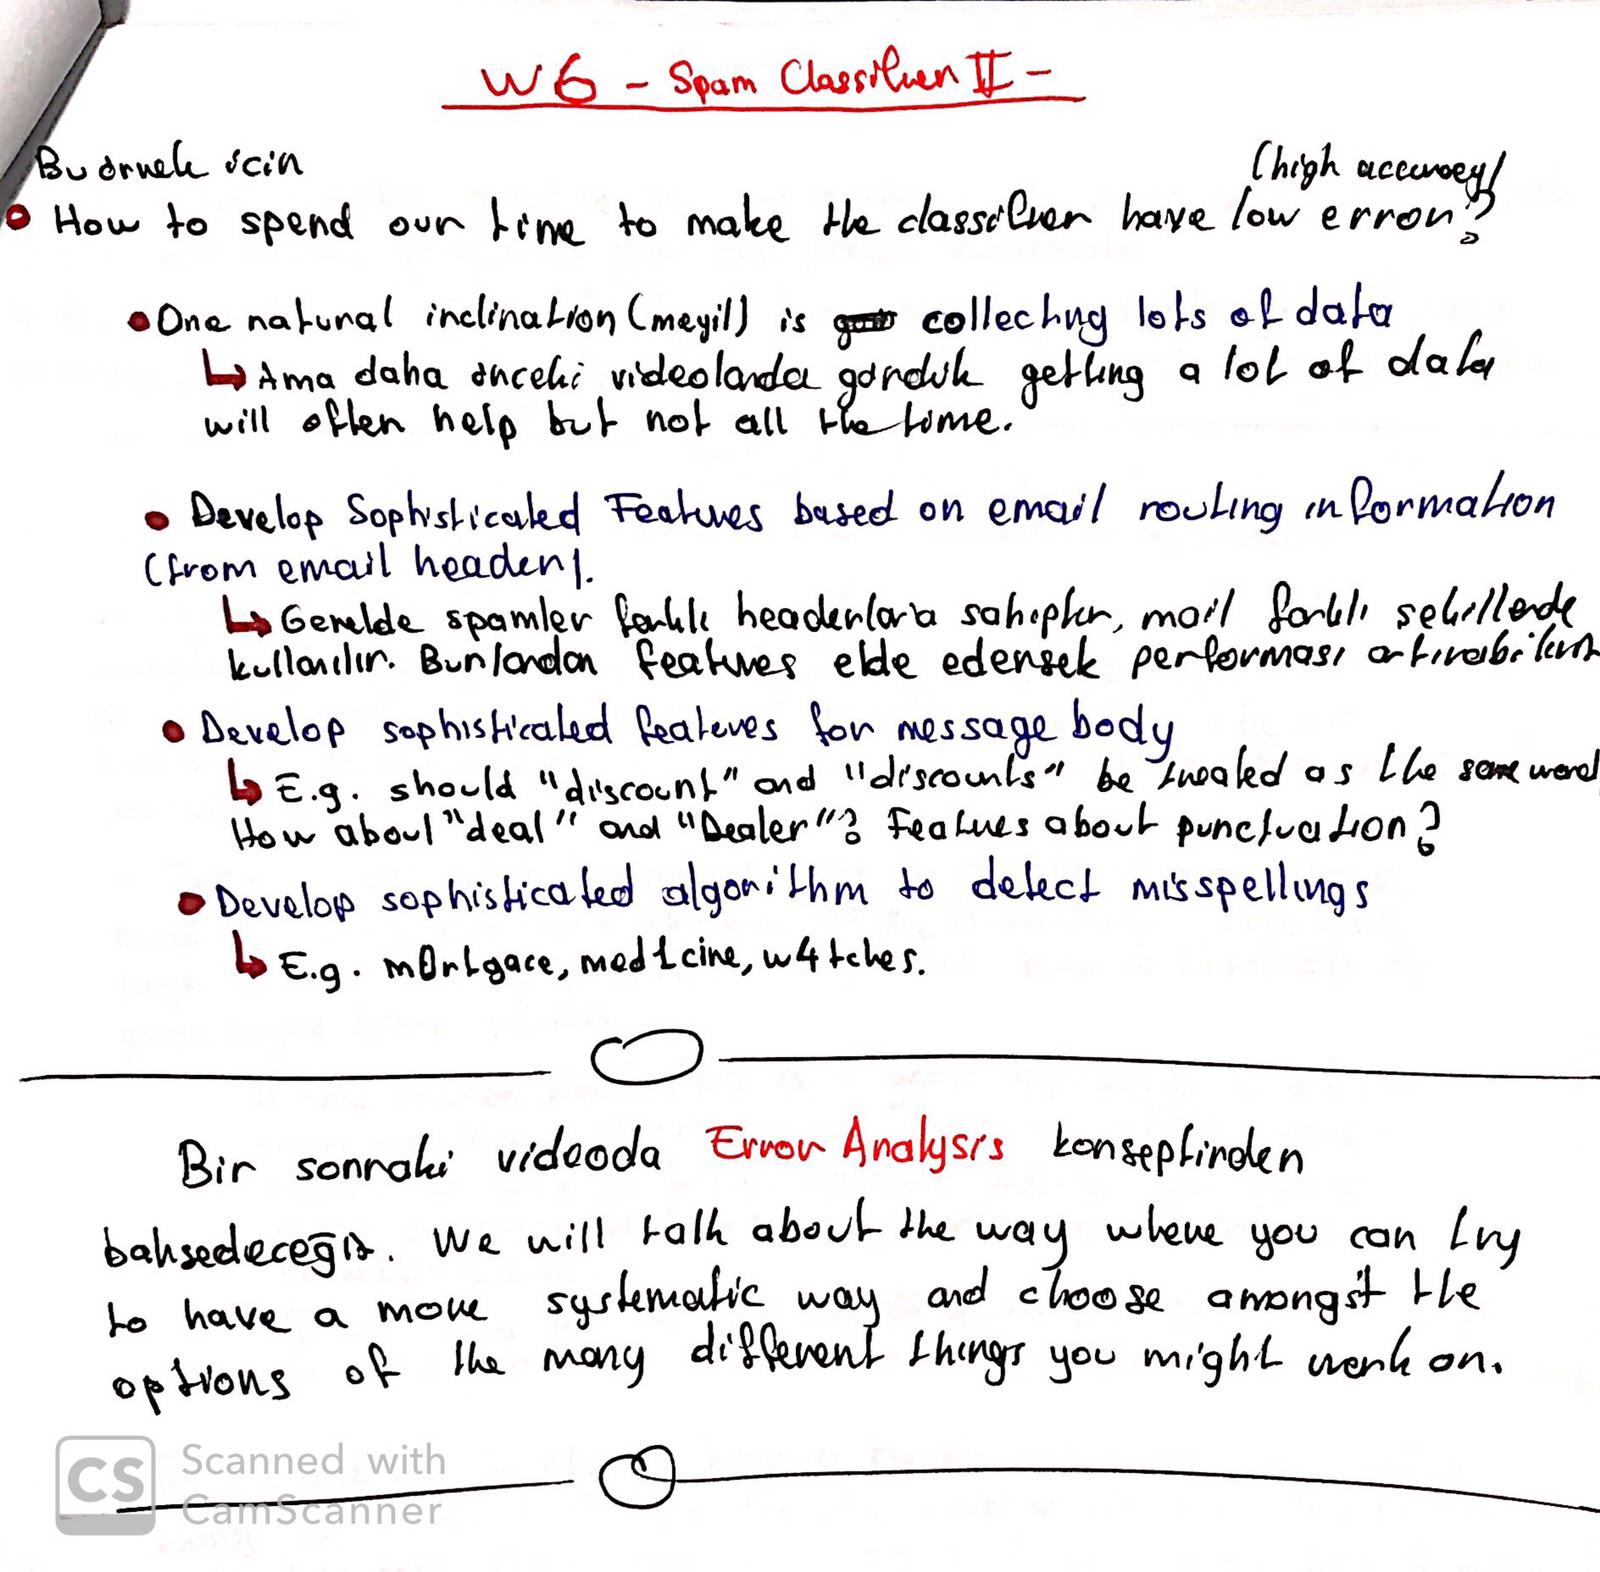 W6 - Spam Classifier II -
Bu örnek için
(high accuracy)
How to spend our time to make the classifier have low error?
One natural inclination (meyil) is collecting lots of data
Ama daha önceki videolarda gördük getting a lot of data
will often help but not all the time.
Develop Sophisticated Features based on email routing information
(from email header).
Genelde spamler farklı headerlara sahipler, mail farklı şekillerde
kullanılır. Bunlardan features elde edersek performası artırabiliriz
Develop sophisticated features for message body
E.g. should "discount" and "discounts" be treated as the same word,
How about "deal" and "Dealer"? Features about punctuation?
Develop sophisticated algorithm to detect misspellings
E.g. m0rtgace, med1cine, w4tches.
Bir sonraki videoda Error Analysis konseptinden
bahsedeceğiz. We will talk about the way where you can try
to have a more systematic way and choose amongst the
options of the many different things you might work on.
CS Scanned with
CamScanner